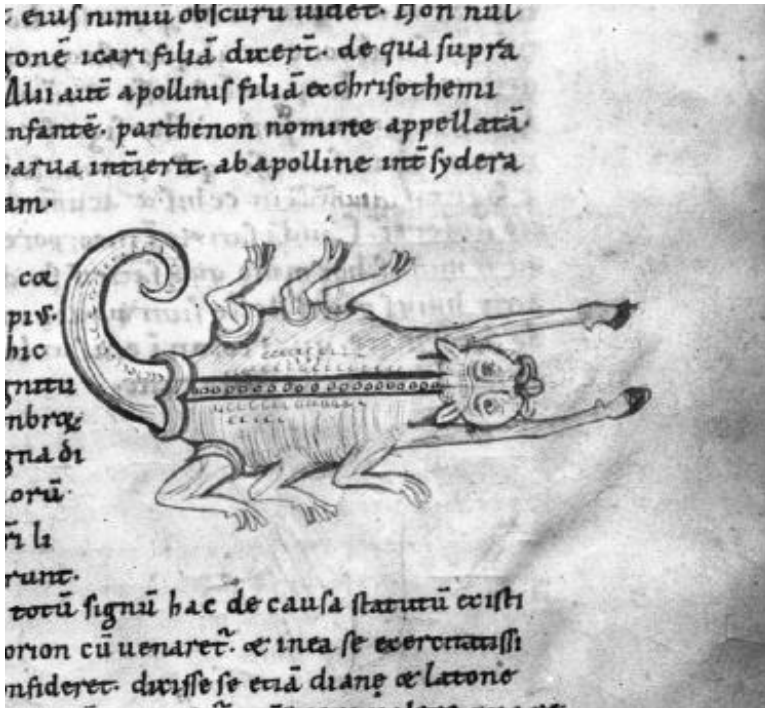 eius nimiū obscurū uidet. Non nul
gonē icari filiā dicerē̄t. de qua supra
Alii autē apollinis filiā ex chrisothemi
nfantē. parthenon nomine appellatā.
parua int̄ierit. ab apolline int̄ sydera
am.
cœ
pius.
hic
gnitu
mbræ
gna di
orū
ri li
runt.
totū signū hac de causa statutū existi
orion cū uenaret̄. & in ea se exercitatissi
nfideret. dixisse se etiā dianę & latonę